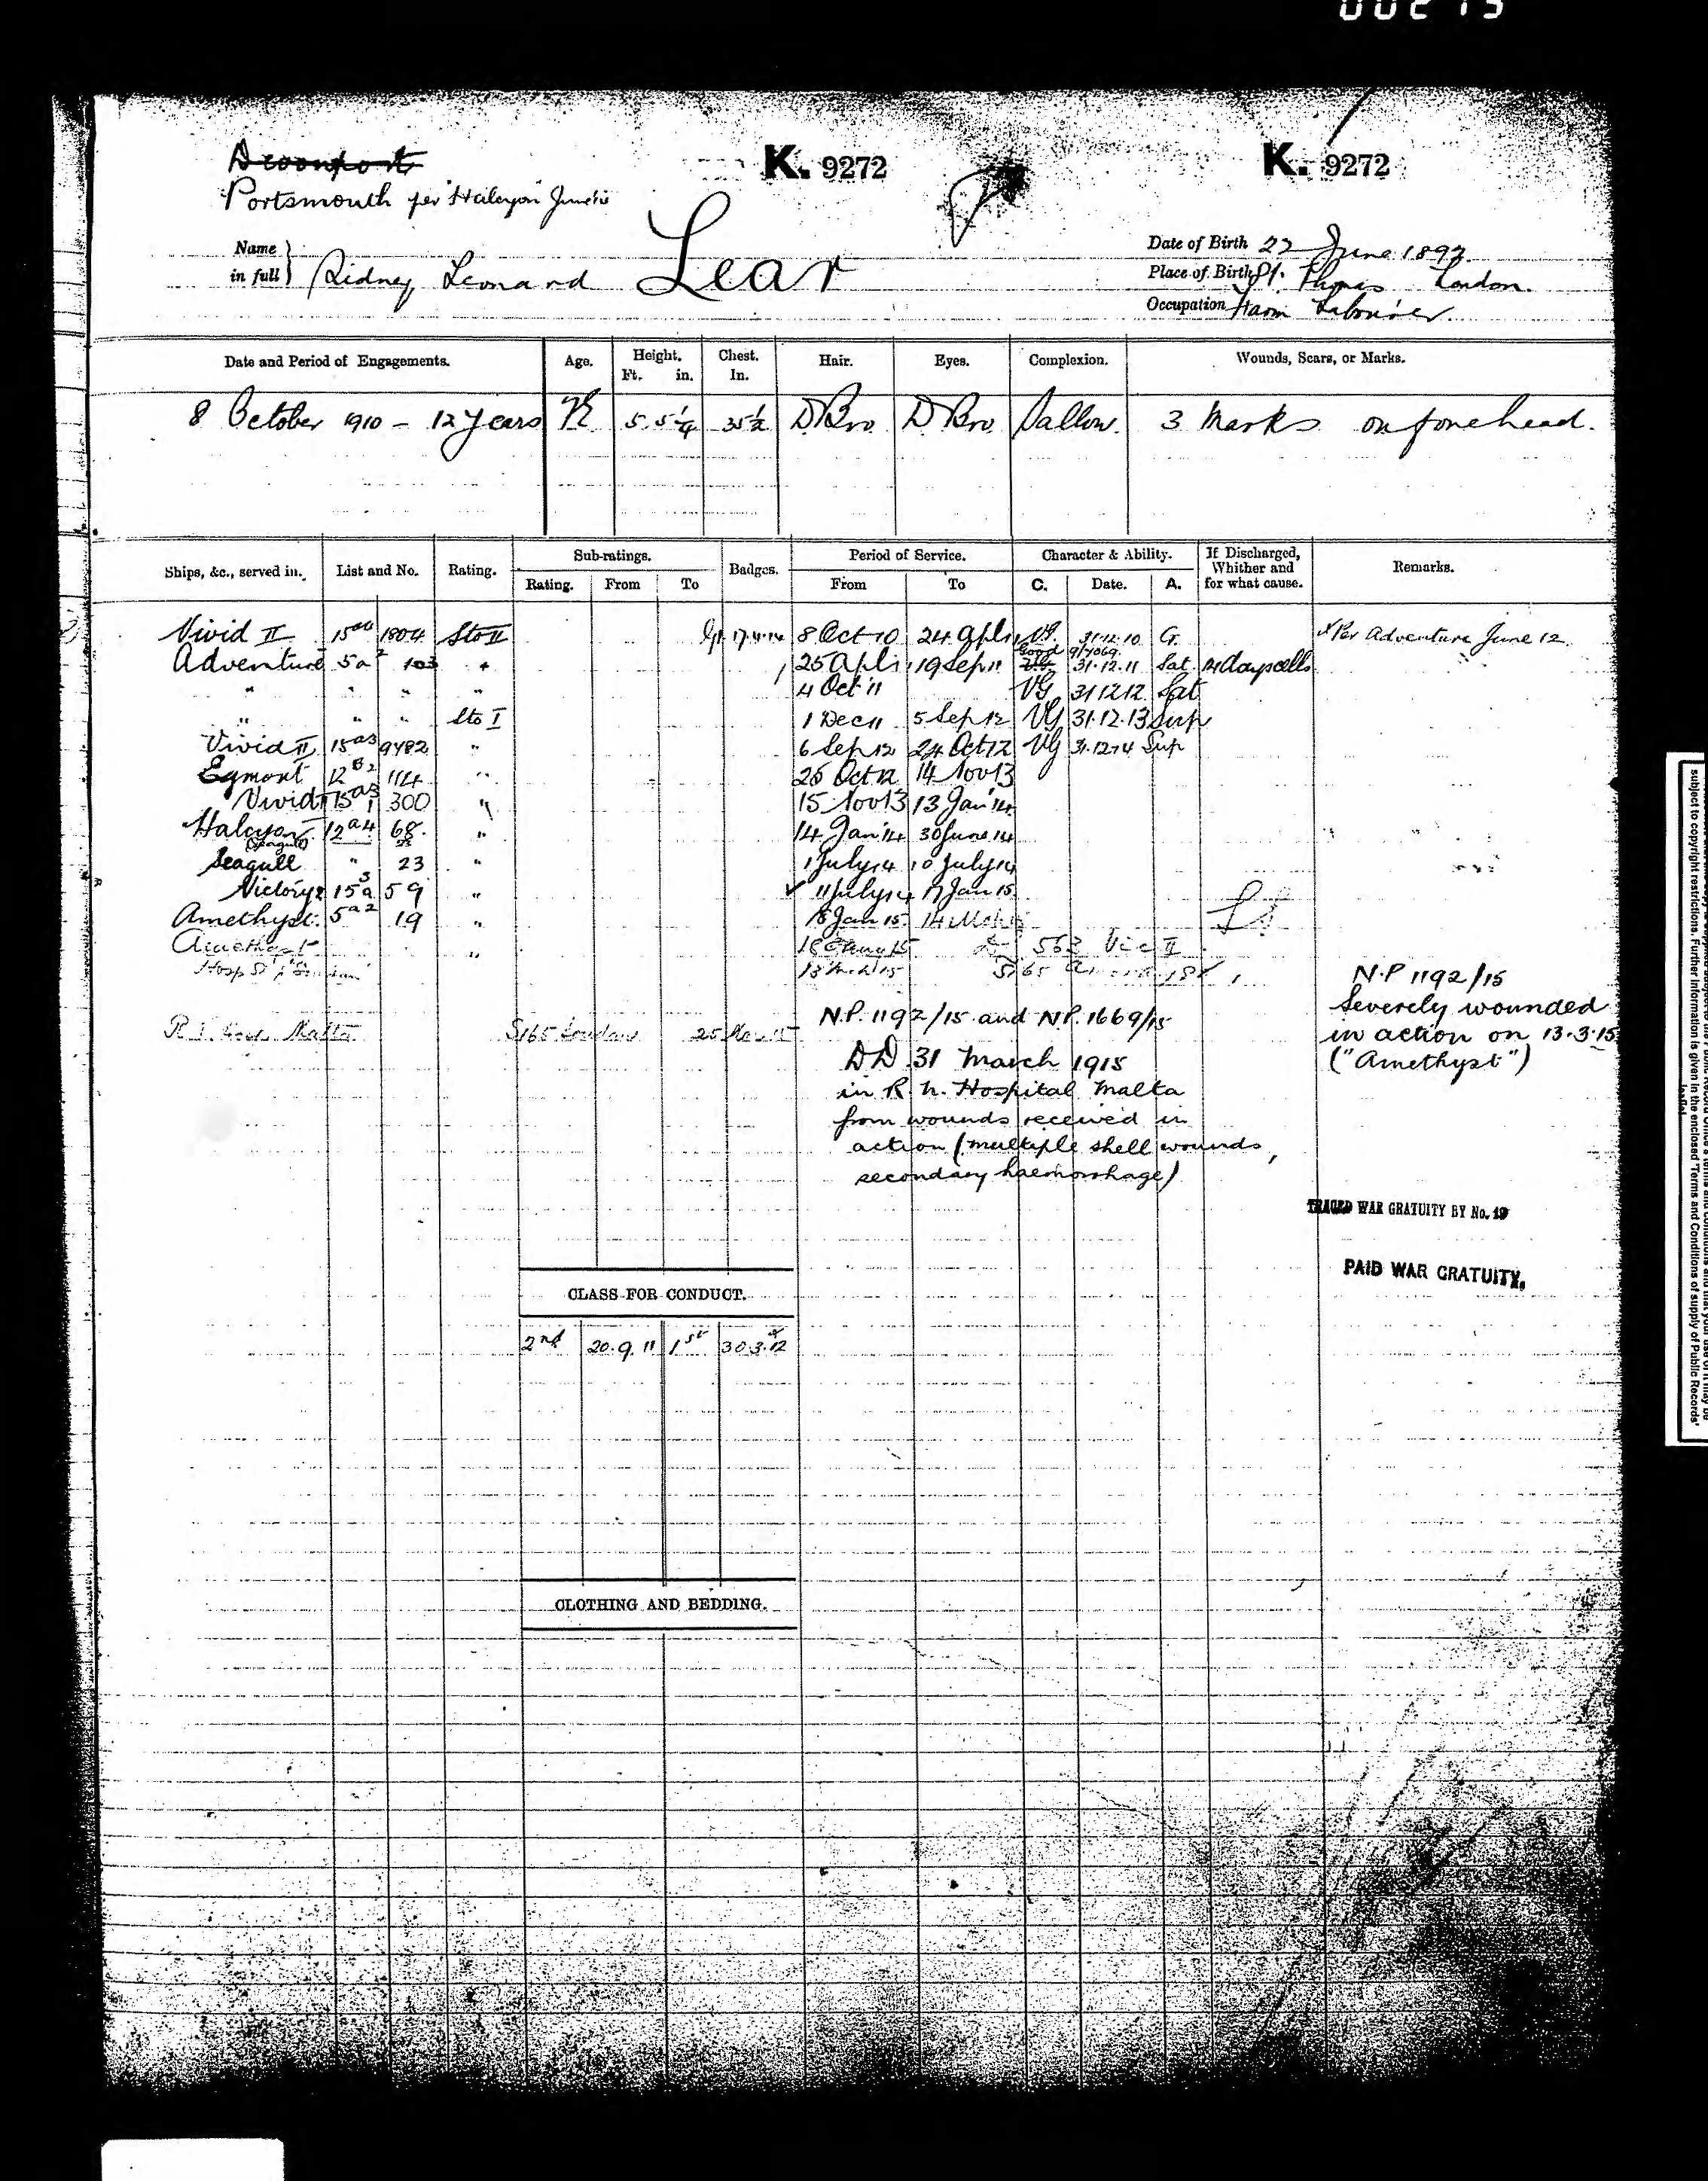 Devonport
Portsmouth per "Halcyon" June
K. 9272
K. 9272
Name in full } Sidney Leonard Lear
Date of Birth 22 June 1892
Place of Birth St. Thomas London.
Occupation Farm Labourer.
Date and Period of Engagements. Age. Height. Ft. in. Chest. In. Hair. Eyes. Complexion. Wounds, Scars, or Marks.
8 October 1910 - 12 years 5. 5 1/4 35 1/2 D Bro. D Bro. Sallow. 3 Marks on forehead.
Ships, &c., served in. List and No. Rating. Sub-ratings. Rating. From To Badges. Period of Service. From To Character & Ability. C. Date. A. If Discharged, Whither and for what cause. Remarks.
Vivid II 1804 Sto II Gr. 17.4.14 8 Oct 10 24 Apl 11 VG. 31.12.10 G. Per Adventure June 12
Adventure 5a2 103 " 1 25 Apl 11 19 Sep 11 Good 31.12.11 Sat 14 days cells
" " " " 4 Oct 11 VG 31 12 12 Sat
" " " Sto I 1 Dec 11 5 Sep 12 VG 31.12.13 Sup
Vivid II 15a3 9482 " 6 Sep 12 24 Oct 12 VG 31.12.14 Sup
Egmont 12B2 114 " 25 Oct 12 14 Nov 13
Vivid II 15a3 300 " 15 Nov 13 13 Jan 14
Halcyon 12a4 68 " 14 Jan 14 30 June 14
(Seagull)
Seagull " 23 " 1 July 14 10 July 14
Victory 2 15a3 59 " 11 July 14 17 Jan 15
Amethyst 5a2 19 " 18 Jan 15 14 Mch
Amethyst " 563 Vic II
N.P 1192/15
Severely wounded
in action on 13.3.15
("Amethyst")
Malta S165 London 25
N.P. 1192/15 and N.P. 1669/15
DD 31 March 1915
in R. N. Hospital Malta
from wounds received in
action (multiple shell wounds,
secondary haemorrhage)
TRACED WAR GRATUITY BY No. 19
PAID WAR GRATUITY.
CLASS FOR CONDUCT.
2nd 20.9.11 1st 30.3.12
CLOTHING AND BEDDING.